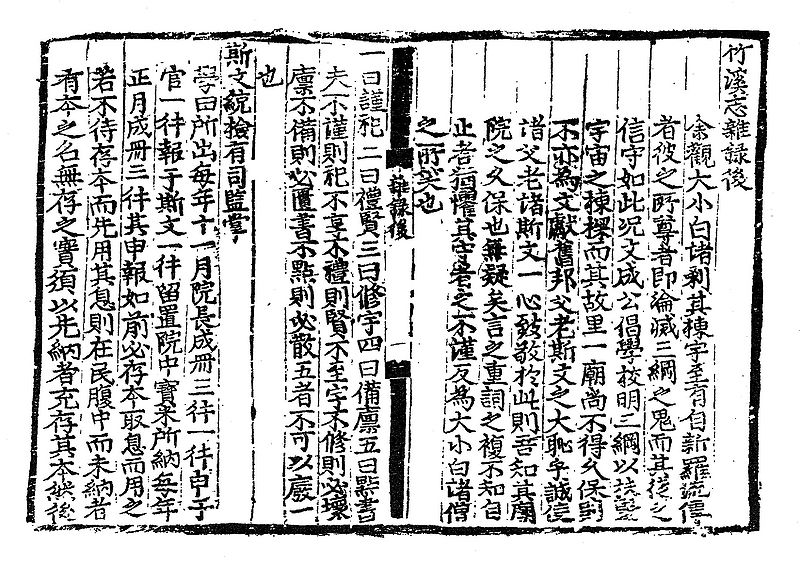 竹溪志雜錄後
余觀大小白諸刹其棟宇至有自新羅流傳
者彼之所尊者即淪滅三綱之鬼而其從之
信守如此况文成公倡學校明三綱以扶竪
宇宙之棟樑而其故里一廟尚不得久保則
不亦為文獻舊邦父老斯文之大恥乎誠使
諸父老諸斯文一心致敬於此則吾知其廟
院之久保也無疑矣言之重詞之複不知自
止者猶懼其守者之不謹反為大小白諸僧
之所笑也
雜錄後
一曰謹祀二曰禮賢三曰修宇四曰備廩五曰點書
夫不謹則祀不享不禮則賢不至宇不修則必壞
廩不備則必匱書不點則必散五者不可以廢一
也
斯文統撿有司監掌
學田所出每年十一月院長成冊三件一件申于
官一件報于斯文一件留置院中寶米所納每年
正月成冊三件其申報如前必存本取息而用之
若不待存本而先用其息則在民腹中而未納者
有本之名無存之實須以先納者充存其本然後